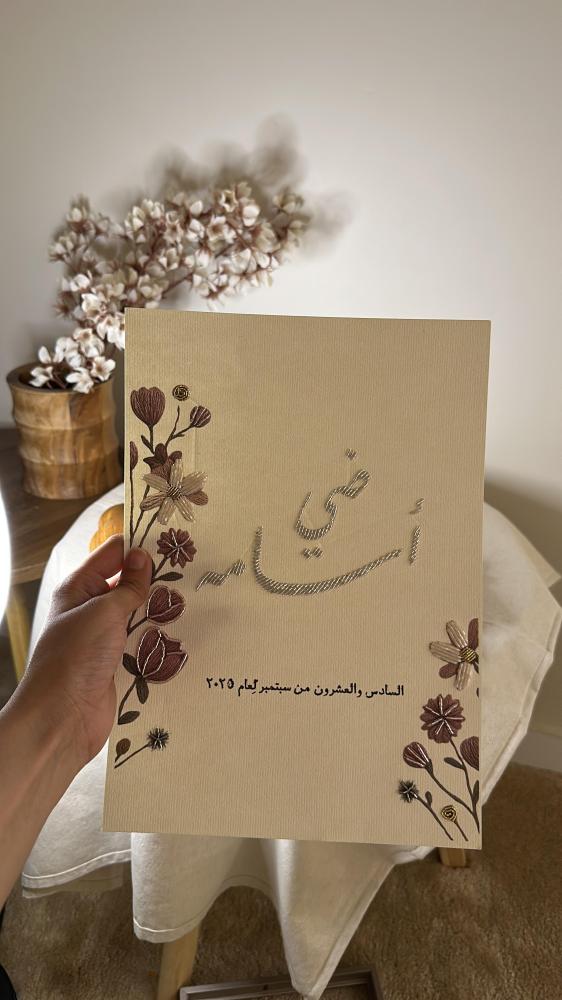 ضي
أسامه
السادس والعشرون من سبتمبر لعام ٢٠٢٥